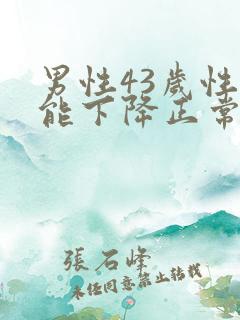 男性43歲性
能下降正常
張石峰
未经同意禁止转载